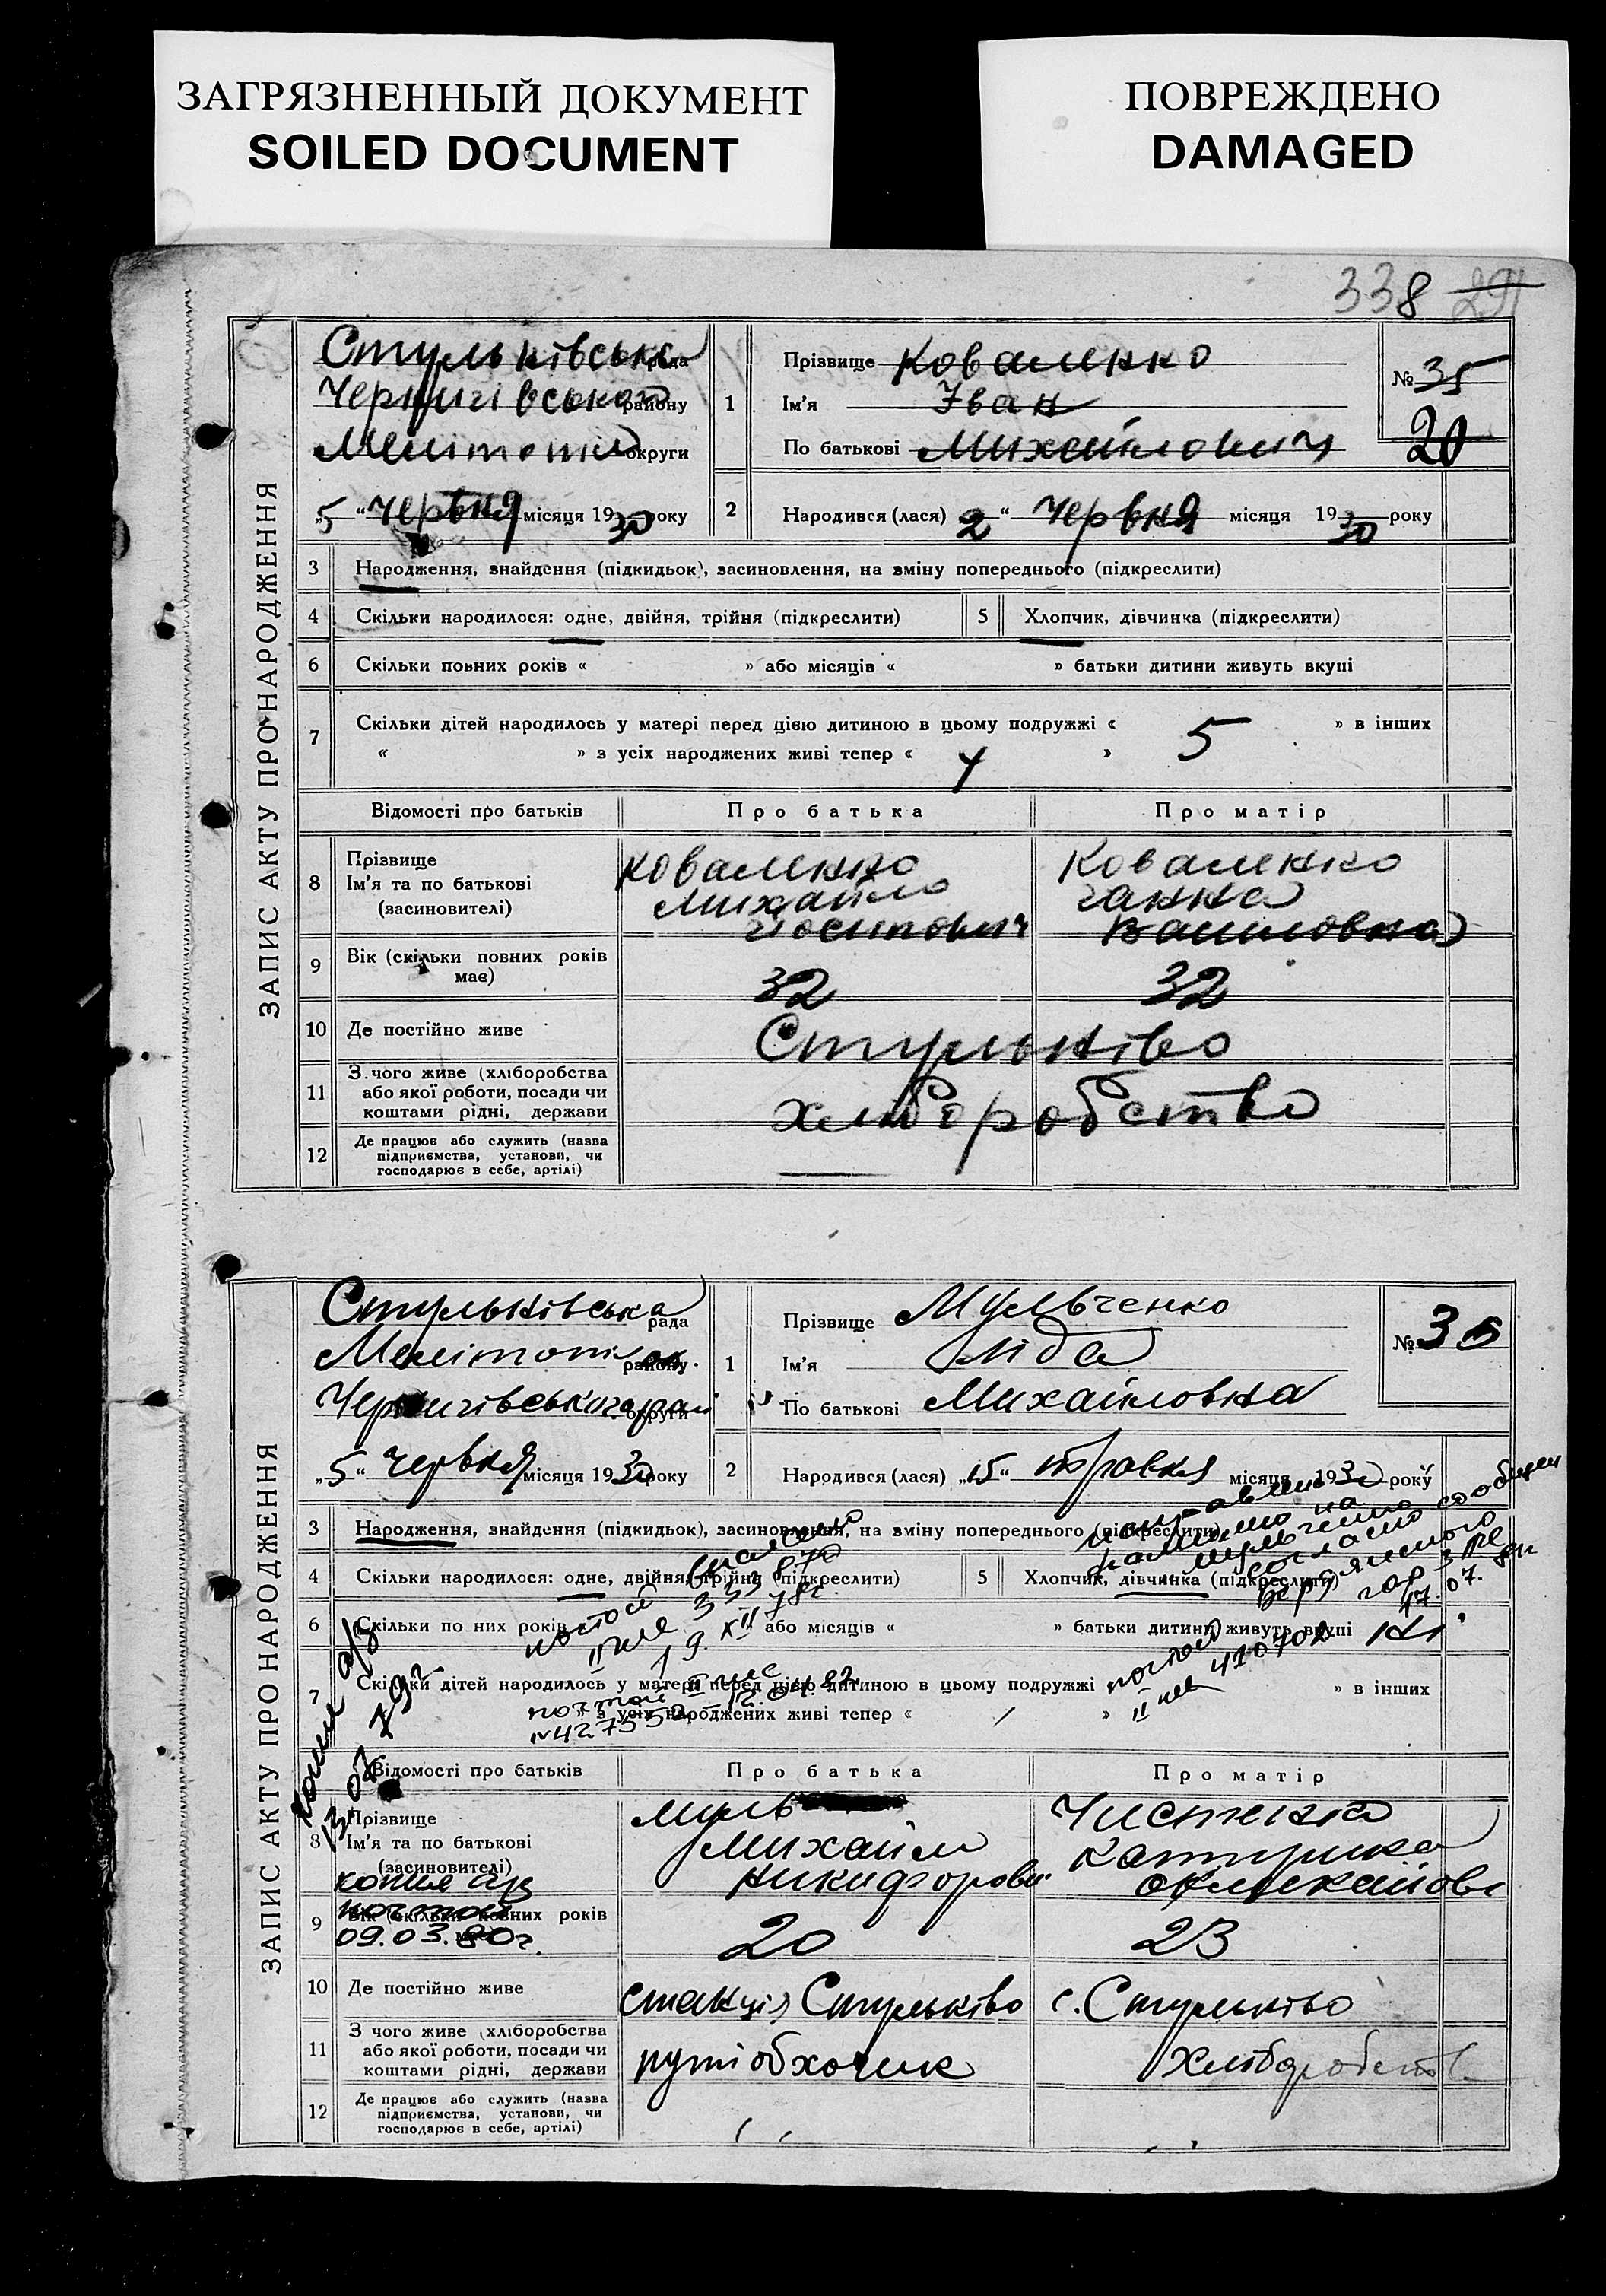 ЗАГРЯЗНЕННЫЙ ДОКУМЕНТ
SOILED DOCUMENT
ПОВРЕЖДЕНО
DAMAGED
338 291
ЗАПИС АКТУ ПРО НАРОДЖЕННЯ
Стульнівська рада
Чернигівського району
Мелітопіл округи
„5“ Червня місяця 1930 року
1 Прізвище Коваленко
Ім'я Іван
По батькові Михайлович
№ 35
20
2 Народився (лася) 2“ Червня місяця 1930 року
3 Народження, знайдення (підкидьок), засиновлення, на зміну попереднього (підкреслити)
4 Скільки народилося: одне, двійня, трійня (підкреслити) 5 Хлопчик, дівчинка (підкреслити)
6 Скільки повних років « » або місяців « » батьки дитини живуть вкупі
7 Скільки дітей народилось у матері перед цією дитиною в цьому подружжі « 5 » в інших
« » з усіх народжених живі тепер « 4 »
Відомості про батьків Про батька Про матір
8 Прізвище Коваленко Коваленко
Ім'я та по батькові Михайло Ганна
(засиновителі) Йосипович
9 Вік (скільки повних років має) 32 32
10 Де постійно живе Стульніво
11 З чого живе (хліборобства
або якої роботи, посади чи
коштами рідні, держави хліборобство
12 Де працює або служить (назва
підприємства, установи, чи
господарює в себе, артілі)
ЗАПИС АКТУ ПРО НАРОДЖЕННЯ
Стульнівська рада
Мелітопіл ок. району
Чернигівського рай округи
„5“ Червня місяця 1930 року
1 Прізвище Мульченко
Ім'я Ліда
По батькові Михайловна
№ 36
2 Народився (лася) „15“ травня місяця 1930 року
3 Народження, знайдення (підкидьок), засиновлення, на зміну попереднього (підкреслити)
4 Скільки народилося: одне, двійня, трійня (підкреслити) 5 Хлопчик, дівчинка (підкреслити)
6 Скільки повних років « або місяців « » батьки дитини живуть вкупі Ні
7 Скільки дітей народилось у матері перед цією дитиною в цьому подружжі » в інших
» з усіх народжених живі тепер « »
19.XII 78г.
почтой
№427550 12.04.82
почтой
410702
17.07.
Відомості про батьків Про батька Про матір
8 Прізвище Муль
Ім'я та по батькові Михайло
(засиновителі) Никифорович
копия а/з
почтой
09.03.80г.
9 Вік (скільки повних років 20 23
10 Де постійно живе станція Стульніво с. Стульніво
11 З чого живе (хліборобства
або якої роботи, посади чи
коштами рідні, держави путіобходчик хлібороб
12 Де працює або служить (назва
підприємства, установи, чи
господарює в себе, артілі)